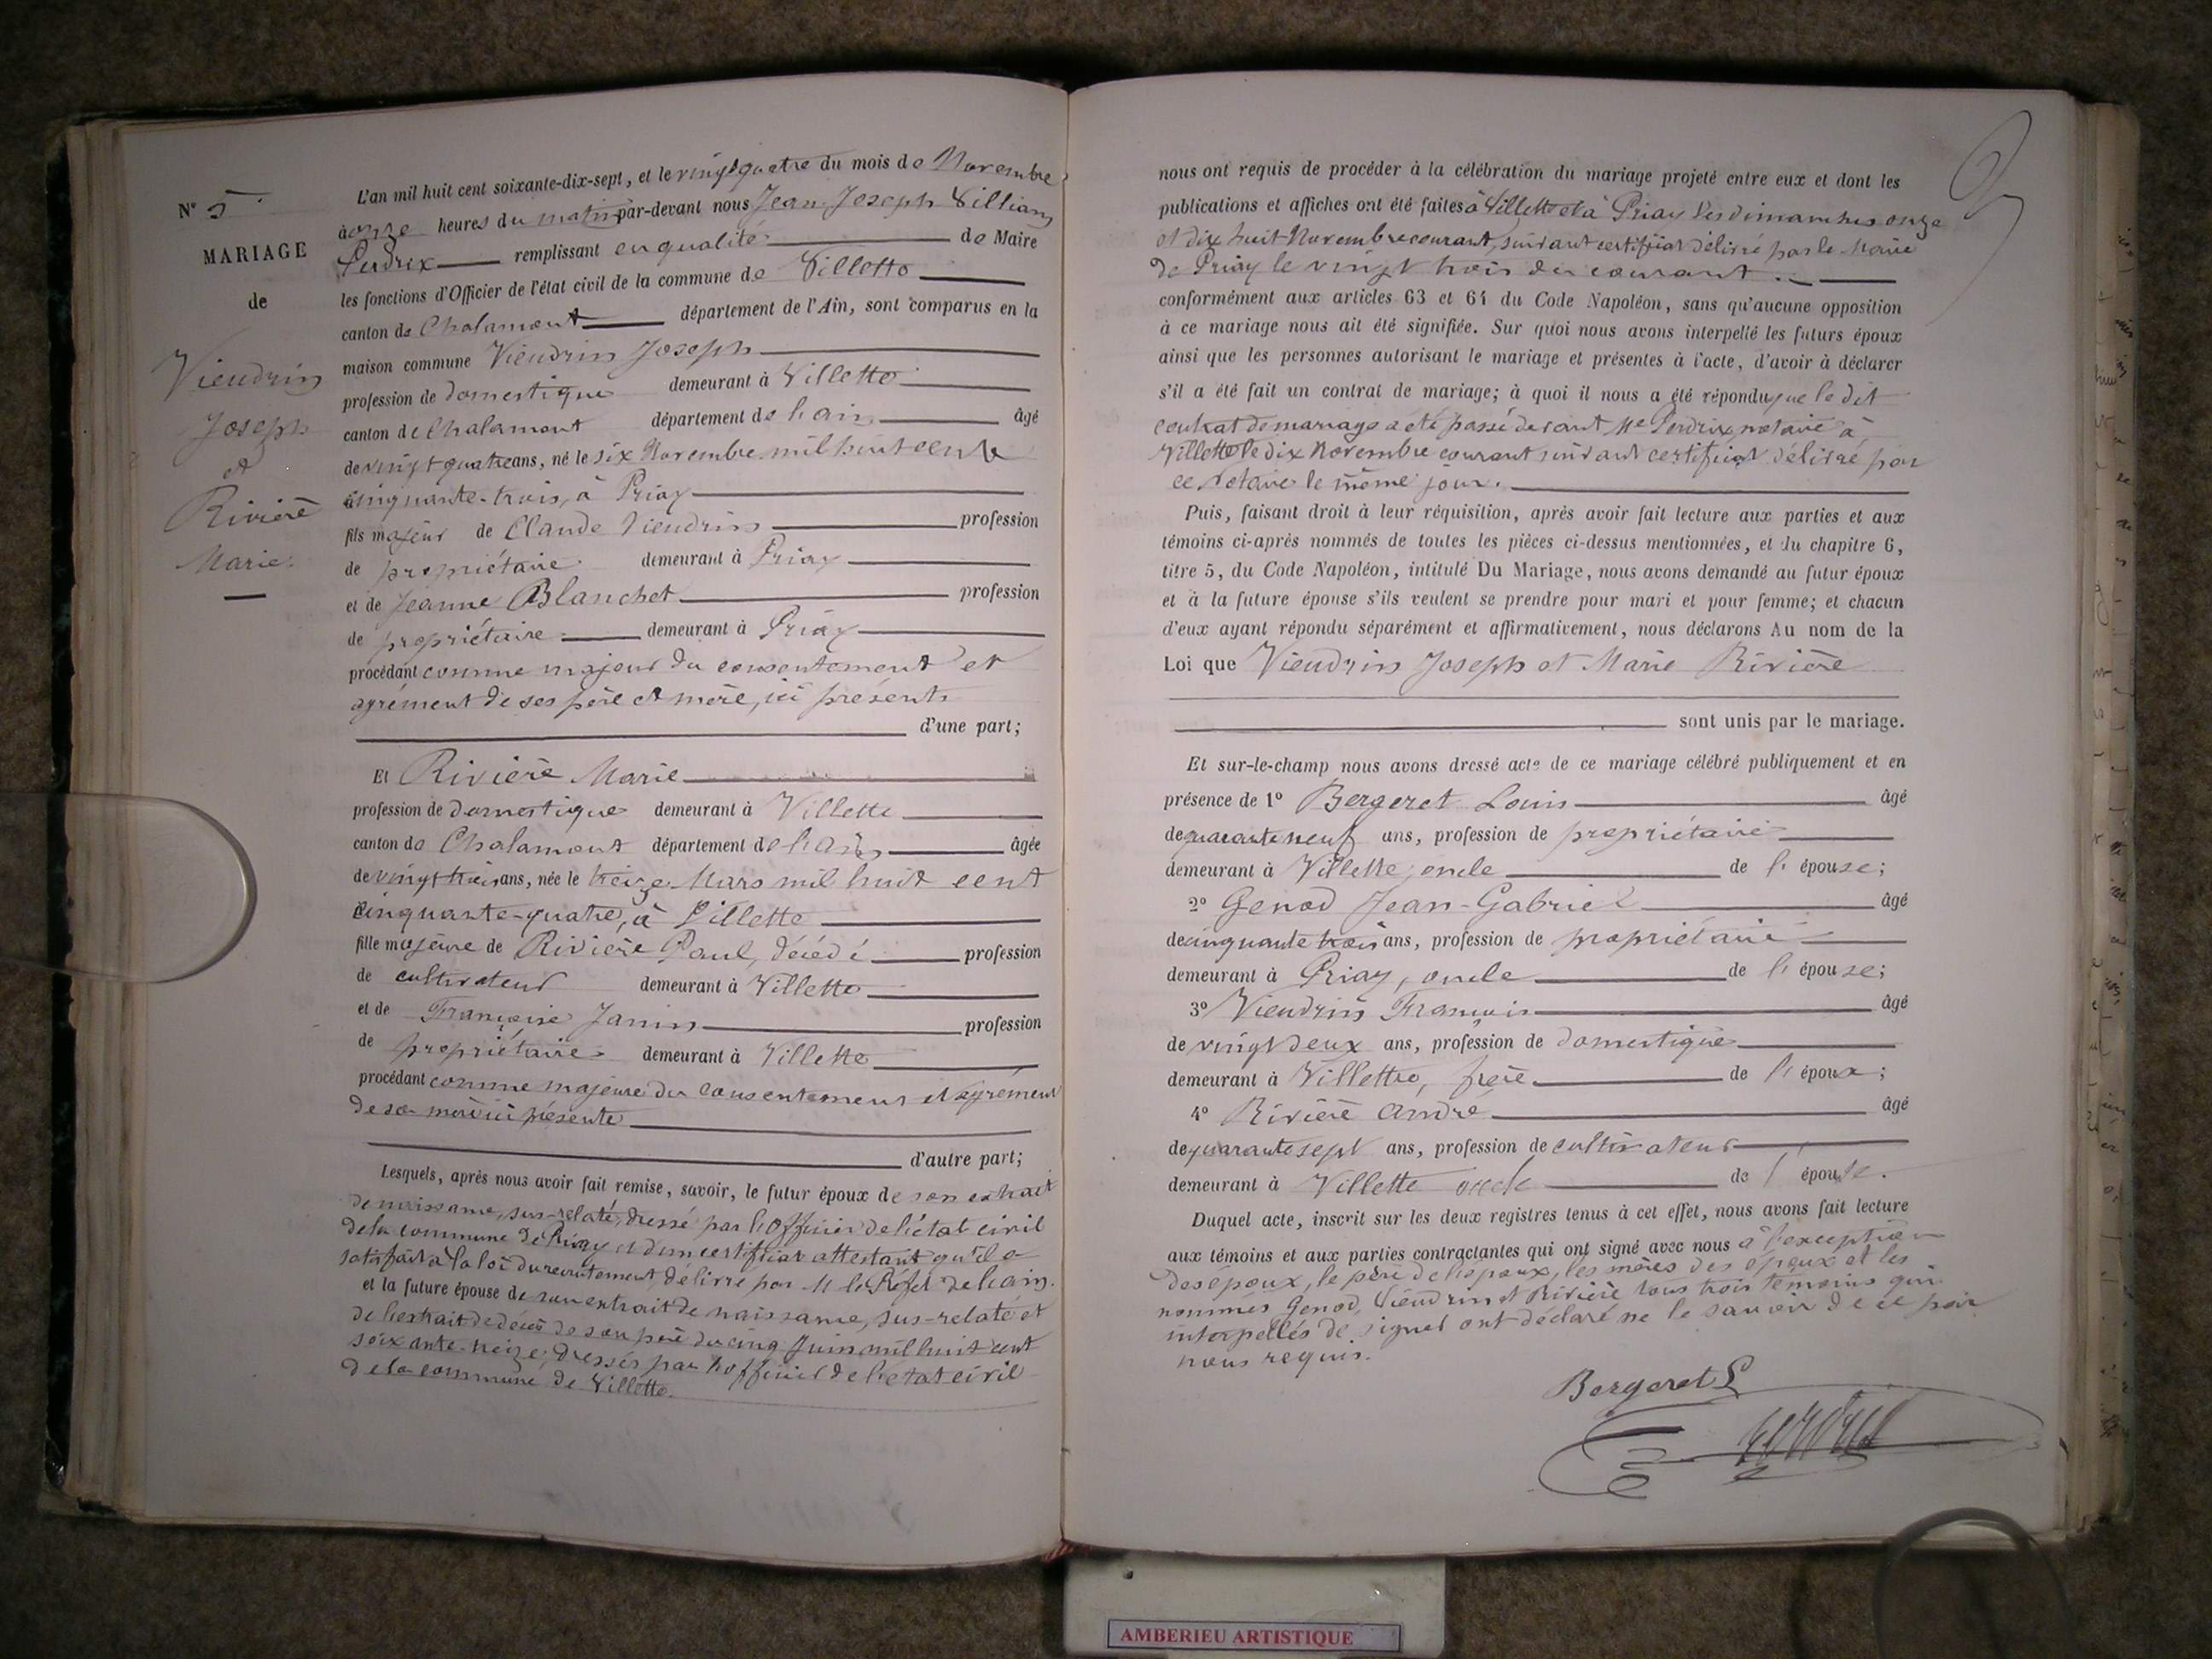 N° 5
MARIAGE
de
Viendrin
Joseph
et
Rivière
Marie.
L'an mil huit cent soixante-dix-sept, et le vingt quatre du mois de Novembre
à onze heures du matin par-devant nous Jean Joseph Villiam
Perdrix remplissant en qualité de Maire
les fonctions d'Officier de l'état civil de la commune de Villette
canton de Chalamont département de l'Ain, sont comparus en la
maison commune Viendrin Joseph
profession de domestique demeurant à Villette
canton de Chalamont département de l'ain âgé
de vingt quatre ans, né le six Novembre mil huit cent
cinquante-trois, à Priay
fils majeur de Claude Viendrin profession
de propriétaire demeurant à Priay
et de Jeanne Blanchet profession
de propriétaire demeurant à Priay
procédant comme majeur du consentement et
agrément de ses père et mère, ici présents
d'une part;
Et Rivière Marie
profession de domestique demeurant à Villette
canton de Chalamont département de l'ain âgée
de vingt trois ans, née le treize Mars mil huit cent
cinquante-quatre, à Villette
fille majeure de Rivière Paul, décédé profession
de cultivateur demeurant à Villette
et de Françoise Janin profession
de propriétaire demeurant à Villette
procédant comme majeure du consentement et agrément
de sa mère ici présente
d'autre part;
Lesquels, après nous avoir fait remise, savoir, le futur époux de son extrait
de naissance, sus-relaté, dressé par l'officier de l'état civil
de la commune de Priay et d'un certificat attestant qu'il a
satisfait à la loi du recrutement, délivré par M le Préfet de l'ain.
et la future épouse de son extrait de naissance, sus-relaté et
de l'extrait de décès de son père du cinq Juin mil huit cent
soixante-treize, dressés par l'officier de l'état civil
de la commune de Villette.
nous ont requis de procéder à la célébration du mariage projeté entre eux et dont les
publications et affiches ont été faites à Villette et à Priay les dimanches onze
et dix huit Novembre courant, suivant certificat délivré par le Maire
de Priay le vingt trois du courant.
conformément aux articles 63 et 64 du Code Napoléon, sans qu'aucune opposition
à ce mariage nous ait été signifiée. Sur quoi nous avons interpellé les futurs époux
ainsi que les personnes autorisant le mariage et présentes à l'acte, d'avoir à déclarer
s'il a été fait un contrat de mariage; à quoi il nous a été répondu que le dit
contrat de mariage a été passé devant Me Perdrix, notaire à
Villette le dix Novembre courant suivant certificat délivré par
ce Notaire le même jour.
Puis, faisant droit à leur réquisition, après avoir fait lecture aux parties et aux
témoins ci-après nommés de toutes les pièces ci-dessus mentionnées, et du chapitre 6,
titre 5, du Code Napoléon, intitulé Du Mariage, nous avons demandé au futur époux
et à la future épouse s'ils veulent se prendre pour mari et pour femme; et chacun
d'eux ayant répondu séparément et affirmativement, nous déclarons Au nom de la
Loi que Viendrin Joseph et Marie Rivière
sont unis par le mariage.
Et sur-le-champ nous avons dressé acte de ce mariage célébré publiquement et en
présence de 1° Bergeret Louis âgé
de quarante neuf ans, profession de propriétaire
demeurant à Villette, oncle de l'épouse;
2° Genod Jean-Gabriel âgé
de cinquante trois ans, profession de propriétaire
demeurant à Priay, oncle de l'épouse;
3° Viendrin François âgé
de vingt deux ans, profession de domestique
demeurant à Villette, frère de l'époux;
4° Rivière André âgé
de quarante sept ans, profession de cultivateur
demeurant à Villette oncle de l'épouse.
Duquel acte, inscrit sur les deux registres tenus à cet effet, nous avons fait lecture
aux témoins et aux parties contractantes qui ont signé avec nous à l'exception
des époux, le père de l'époux, les mères des époux et les
nommés Genod, Viendrin et Rivière tous trois témoins qui
interpellés de signer ont déclaré ne le savoir de ce par
nous requis.
Bergeret L
Perdrix
AMBERIEU ARTISTIQUE